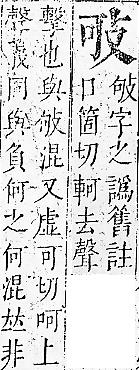 字之譌舊註
口箇切軻去聲
擊也與混又虛可切呵上
聲義同與負何之何混𠀤非